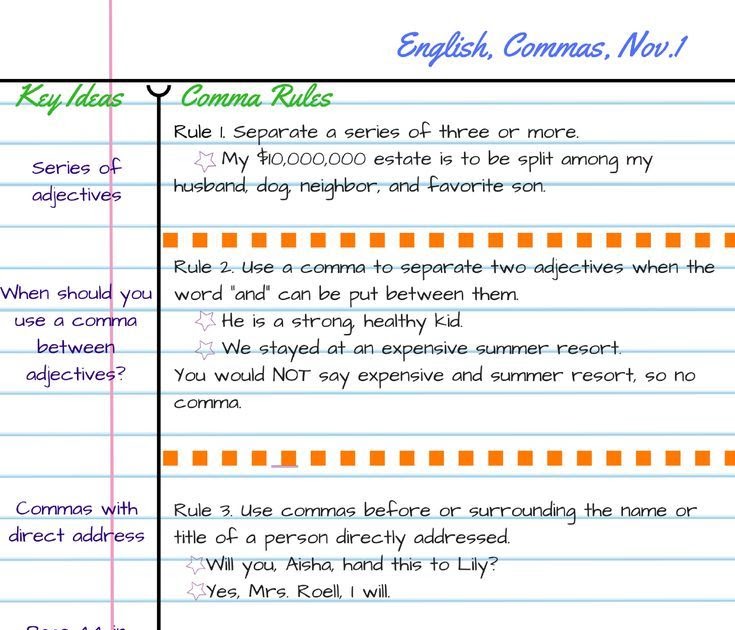 English, Commas, Nov.1
Key Ideas
Comma Rules
Series of
adjectives
Rule 1. Separate a series of three or more.
My $10,000,000 estate is to be split among my
husband, dog, neighbor, and favorite son.
When should you
use a comma
between
adjectives?
Rule 2. Use a comma to separate two adjectives when the
word "and" can be put between them.
He is a strong, healthy kid.
We stayed at an expensive summer resort.
You would NOT say expensive and summer resort, so no
comma.
Commas with
direct address
Rule 3. Use commas before or surrounding the name or
title of a person directly addressed.
Will you, Aisha, hand this to Lily?
Yes, Mrs. Roell, I will.